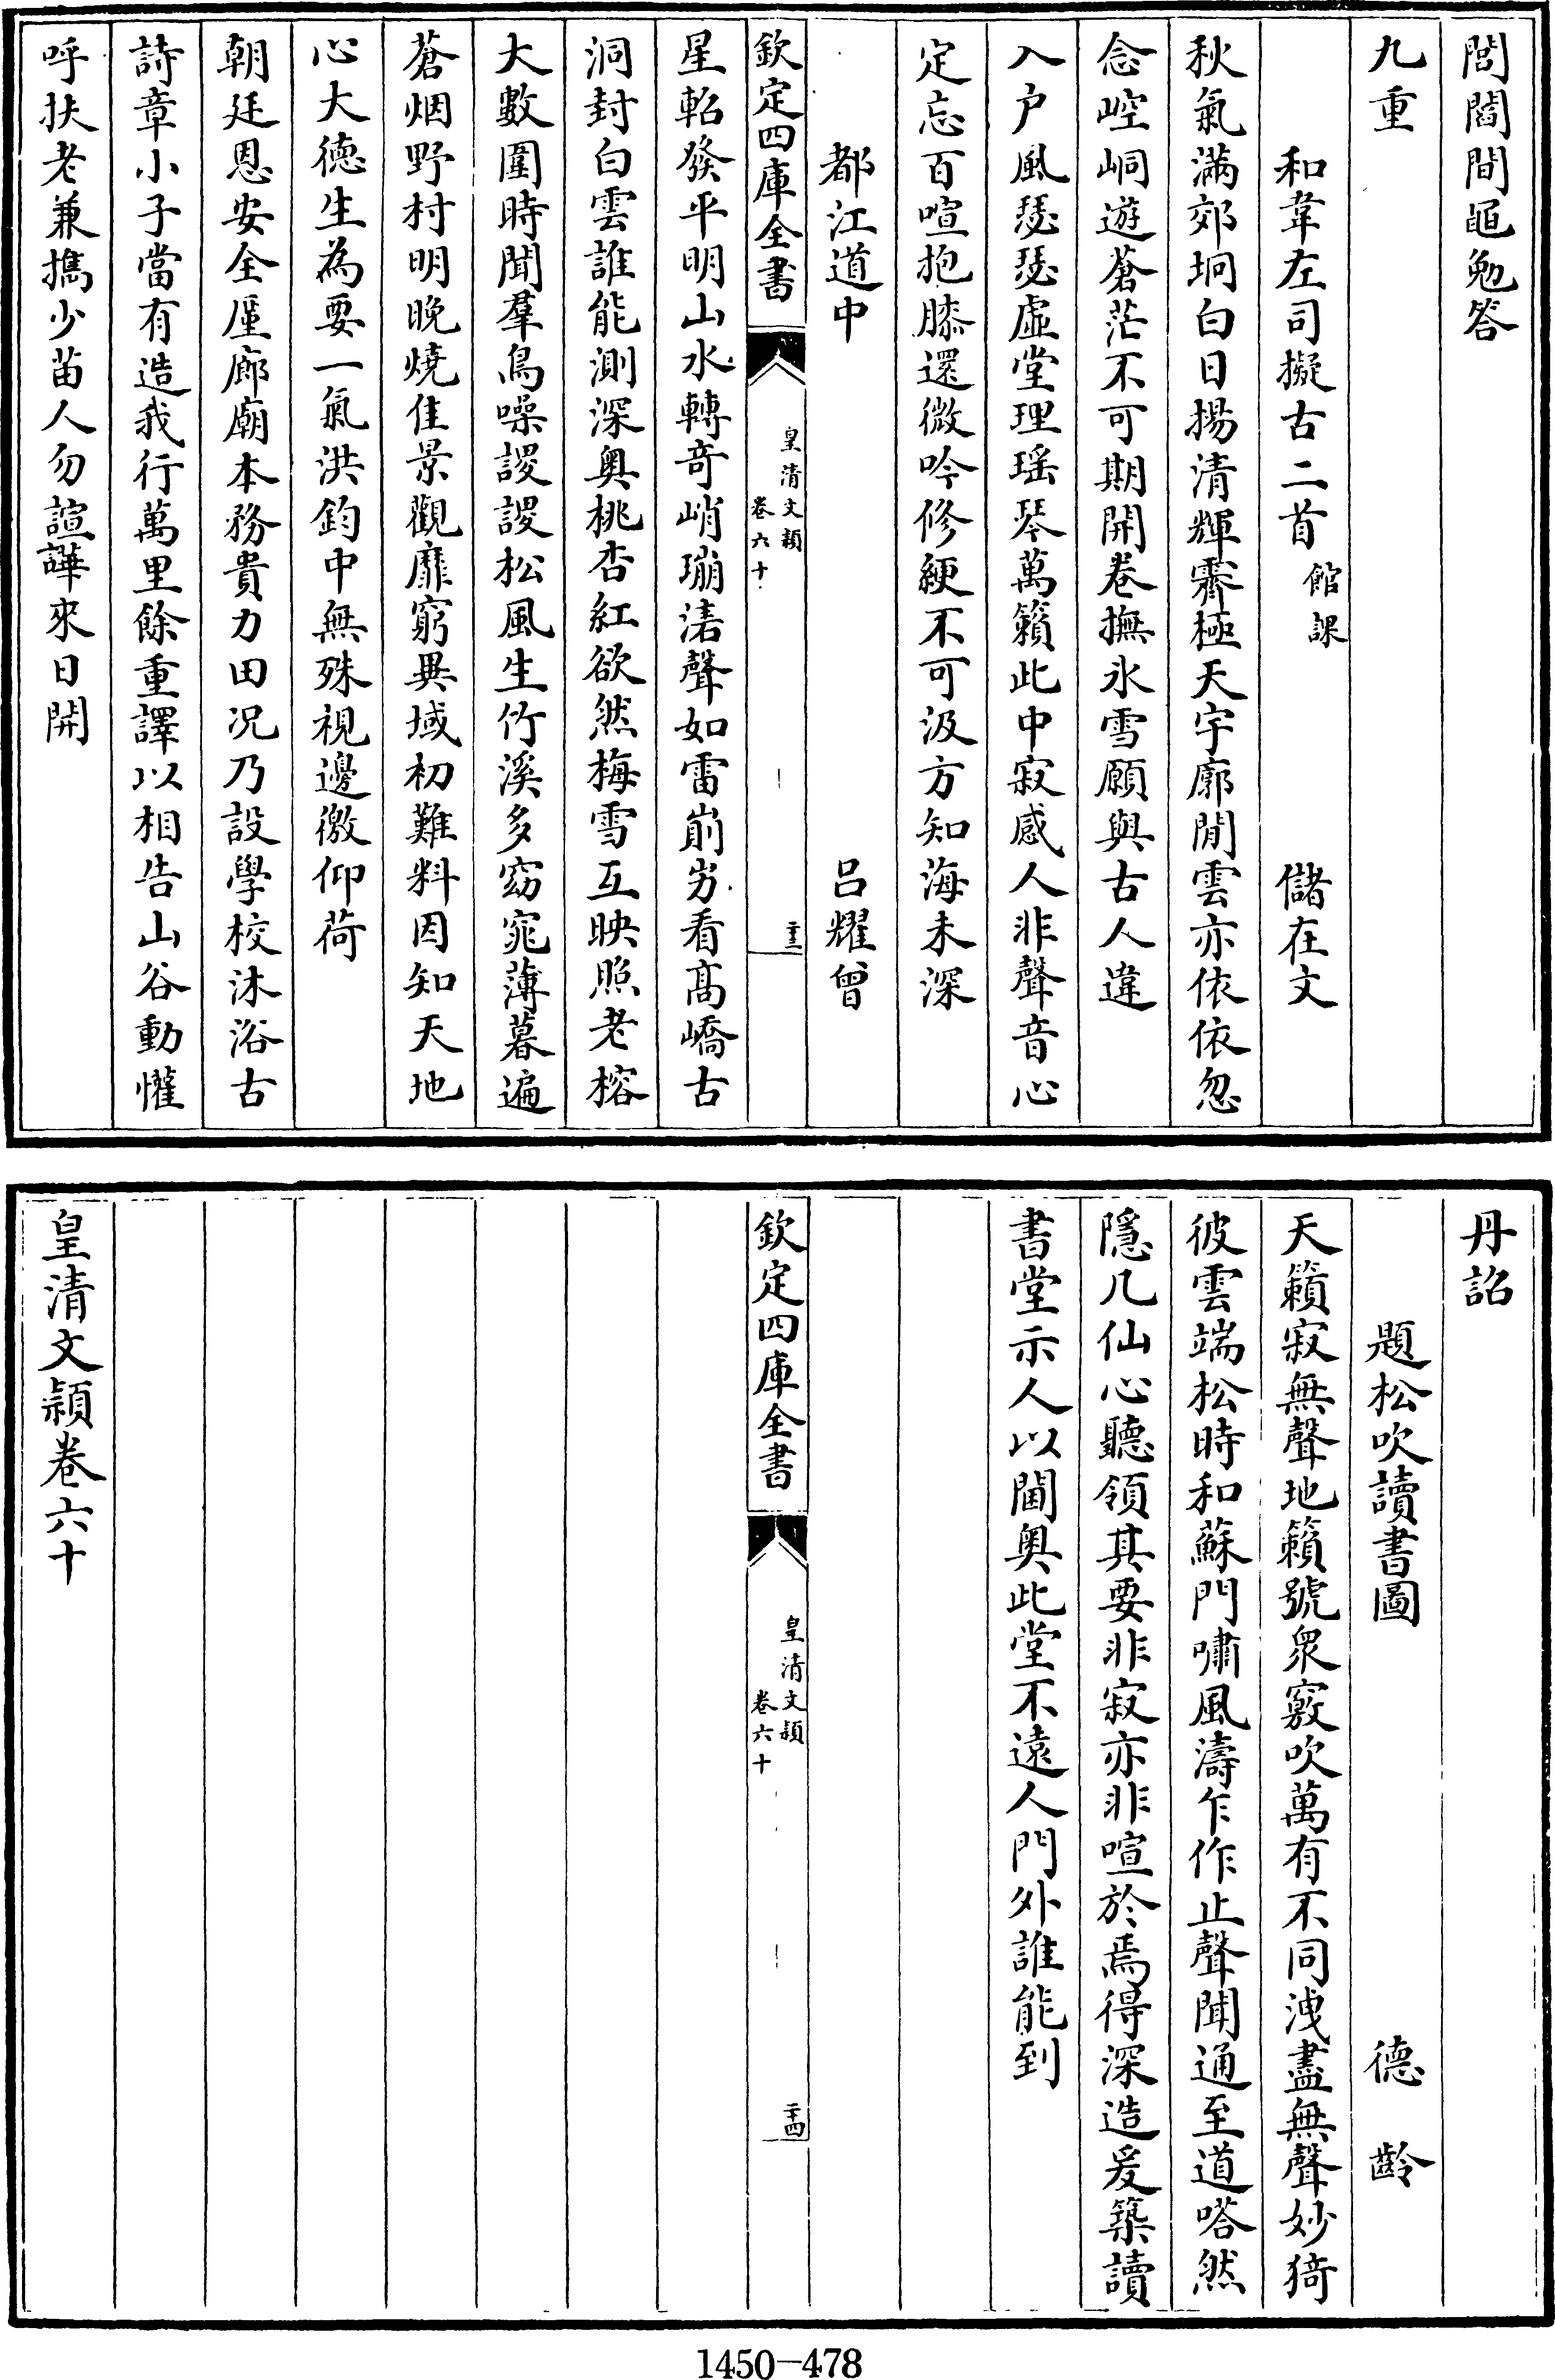 閭閻間黽勉答
九重
和韋左司擬古二首館課 儲在文
秋氣滿郊坰白日揚清輝霽極天宇廓閒雲亦依依忽
念崆峒遊蒼茫不可期開卷撫氷雪願與古人違
入户風瑟瑟虛堂理瑶琴萬籟此中寂感人非聲音心
定忘百喧抱膝還微吟修綆不可汲方知海未深
都江道中 吕耀曾
欽定四庫全書 皇清文穎卷六十 二十三
星軺發平明山水轉奇峭瑚渃聲如雷崱屴看髙嶠古
洞封白雲誰能測深奥桃杏紅欲然梅雪互映照老榕
大數圍時聞羣鳥噪謖謖松風生竹溪多窈窕薄暮遍
蒼烟野村明晚燒佳景觀靡窮異域初難料因知天地
心大德生為要一氣洪鈞中無殊視邊徼仰荷
朝廷恩安全厪廊廟本務貴力田况乃設學校沐浴古
詩章小子當有造我行萬里餘重譯以相告山谷動懽
呼扶老兼攜少苗人勿諠譁來日開
丹詔
題松吹讀書圖 德齡
天籟寂無聲地籟號衆竅吹萬有不同洩盡無聲妙猗
彼雲端松時和蘇門嘯風濤乍作止聲聞通至道嗒然
隱几仙心聽領其要非寂亦非喧於焉得深造爰築讀
書堂示人以閫奥此堂不遠人門外誰能到
欽定四庫全書 皇清文穎卷六十 二十四
皇清文穎卷六十
1450-478